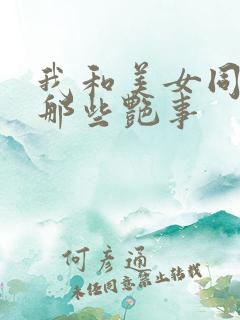 我和美女同
那些艳事
何彦通
未经同意禁止转载